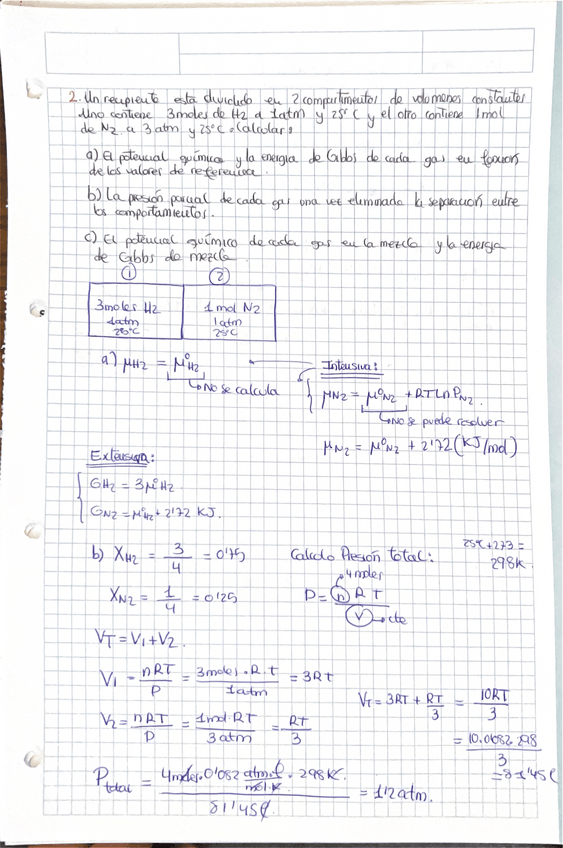 2. Un recipiente esta dividido en 2 compartimentos de volumenes constantes
Uno contiene 3 moles de H2 a 1atm y 25°C y el otro contiene 1mol
de N2 a 3 atm y 25°C. Calcular:
a) El potencial químico y la energia de Gibbs de cada gas en función
de los valores de referencia.
b) La presión parcial de cada gas una vez eliminada la separación entre
los compartimientos.
c) El potencial químico de cada gas en la mezcla y la energia
de Gibbs de mezcla.
① ②
3moles H2 1mol N2
1atm 1atm
25°C 25°C
a) μH2 = μ°H2
↳No se calcula
Intensiva:
μN2 = μ°N2 + RTLnPN2.
↳No se puede resolver
μN2 = μ°N2 + 2'72 (KJ/mol)
Extensiva:
GH2 = 3μ°H2
GN2 = μ°H2 + 2'72 KJ.
b) XH2 = 3/4 = 0'75
XN2 = 1/4 = 0'25
Calculo Presión total:
25°C+273 =
298K
4moles
P = n R T / V → cte
VT = V1 + V2.
V1 = nRT/P = 3moles.R.t/1atm = 3Rt
V2 = nRT/P = 1mol.RT/3atm = RT/3
VT = 3RT + RT/3 = 10RT/3
= 10.0'082.298/3
= 81'45ℓ
Ptotal = 4moles.0'082 atm.ℓ/mol.K . 298K / 81'45ℓ = 1'2 atm.